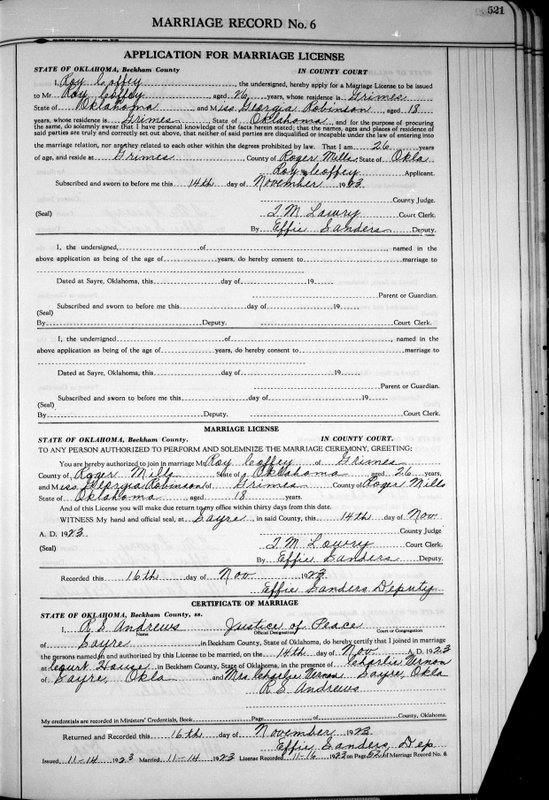 521
MARRIAGE RECORD No. 6
APPLICATION FOR MARRIAGE LICENSE
STATE OF OKLAHOMA, Beckham County IN COUNTY COURT
I, Roy Coffey, the undersigned, hereby apply for a Marriage License to be issued
to Mr Roy Coffey, aged 26 years, whose residence is Grimes
State of Oklahoma, and Miss Georgia Robinson aged 18
years, whose residence is Grimes, State of Oklahoma, and for the purpose of procuring
the same, do solemnly swear that I have personal knowledge of the facts herein stated; that the names, ages and places of residence of
said parties are truly and correctly set out above, that neither of said parties are disqualified or incapable under the law of entering into
the marriage relation, nor are they related to each other within the degrees prohibited by law. That I am 26 years
of age, and reside at Grimes County of Roger Mills, State of Okla
Roy Coffey Applicant.
Subscribed and sworn to before me this 14th day of November 1923
County Judge.
(Seal) T. M. Lowry Court Clerk.
By Effie Sanders Deputy.
I, the undersigned, of, named in the
above application as being of the age of years, do hereby consent to marriage to
Dated at Sayre, Oklahoma, this day of 19
Parent or Guardian.
Subscribed and sworn to before me this day of 19
(Seal)
By Deputy. Court Clerk.
I, the undersigned of, named in the
above application as being of the age of years, do hereby consent to marriage to
Dated at Sayre, Oklahoma, this day of 19
Parent or Guardian.
Subscribed and sworn to before me this day of 19
(Seal)
By Deputy. Court Clerk.
MARRIAGE LICENSE
STATE OF OKLAHOMA, Beckham County. IN COUNTY COURT.
TO ANY PERSON AUTHORIZED TO PERFORM AND SOLEMNIZE THE MARRIAGE CEREMONY, GREETING:
You are hereby authorized to join in marriage Mr Roy Coffey of Grimes
County of Roger Mills State of Oklahoma aged 26 years,
and Miss Georgia Robinson of Grimes County of Roger Mills
State of Oklahoma aged 18 years.
And of this License you will make due return to my office within thirty days from this date.
WITNESS My hand and official seal, at Sayre, in said County, this 14th day of Nov
A. D. 1923 County Judge
(Seal) T. M. Lowry Court Clerk.
By Effie Sanders Deputy.
Recorded this 16th day of Nov 1923
Effie Sanders Deputy
CERTIFICATE OF MARRIAGE
STATE OF OKLAHOMA, Beckham County, ss.
I, R E Andrews Justice of Peace
Name Official Designating Court or Congregation
of Sayre, in Beckham County, State of Oklahoma, do hereby certify that I joined in marriage
the persons named in and authorized by this License to be married, on the 14th day of Nov A. D. 1923
at Court House in Beckham County, State of Oklahoma, in the presence of Charlie Vernon
of Sayre, Okla and Mrs Charlie Vernon Sayre, Okla
R E Andrews
My credentials are recorded in Ministers' Credentials, Book, Page, of County, Oklahoma.
Returned and Recorded this 16th day of November 1923
Effie Sanders Dep
Issued 11-14 1923 Married 11-14 1923 License Recorded 11-16 1923 on Page 521 of Marriage Record No. 6